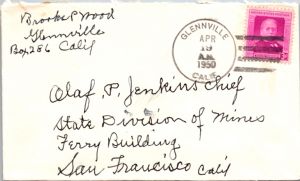 Brooks P Wood
Glennville
Box 286 Calif
GLENNVILLE
APR
19
A.M.
1950
CALIF.
Olaf. P. Jenkins Chief
State Division of Mines
Ferry Building
San Francisco Calif